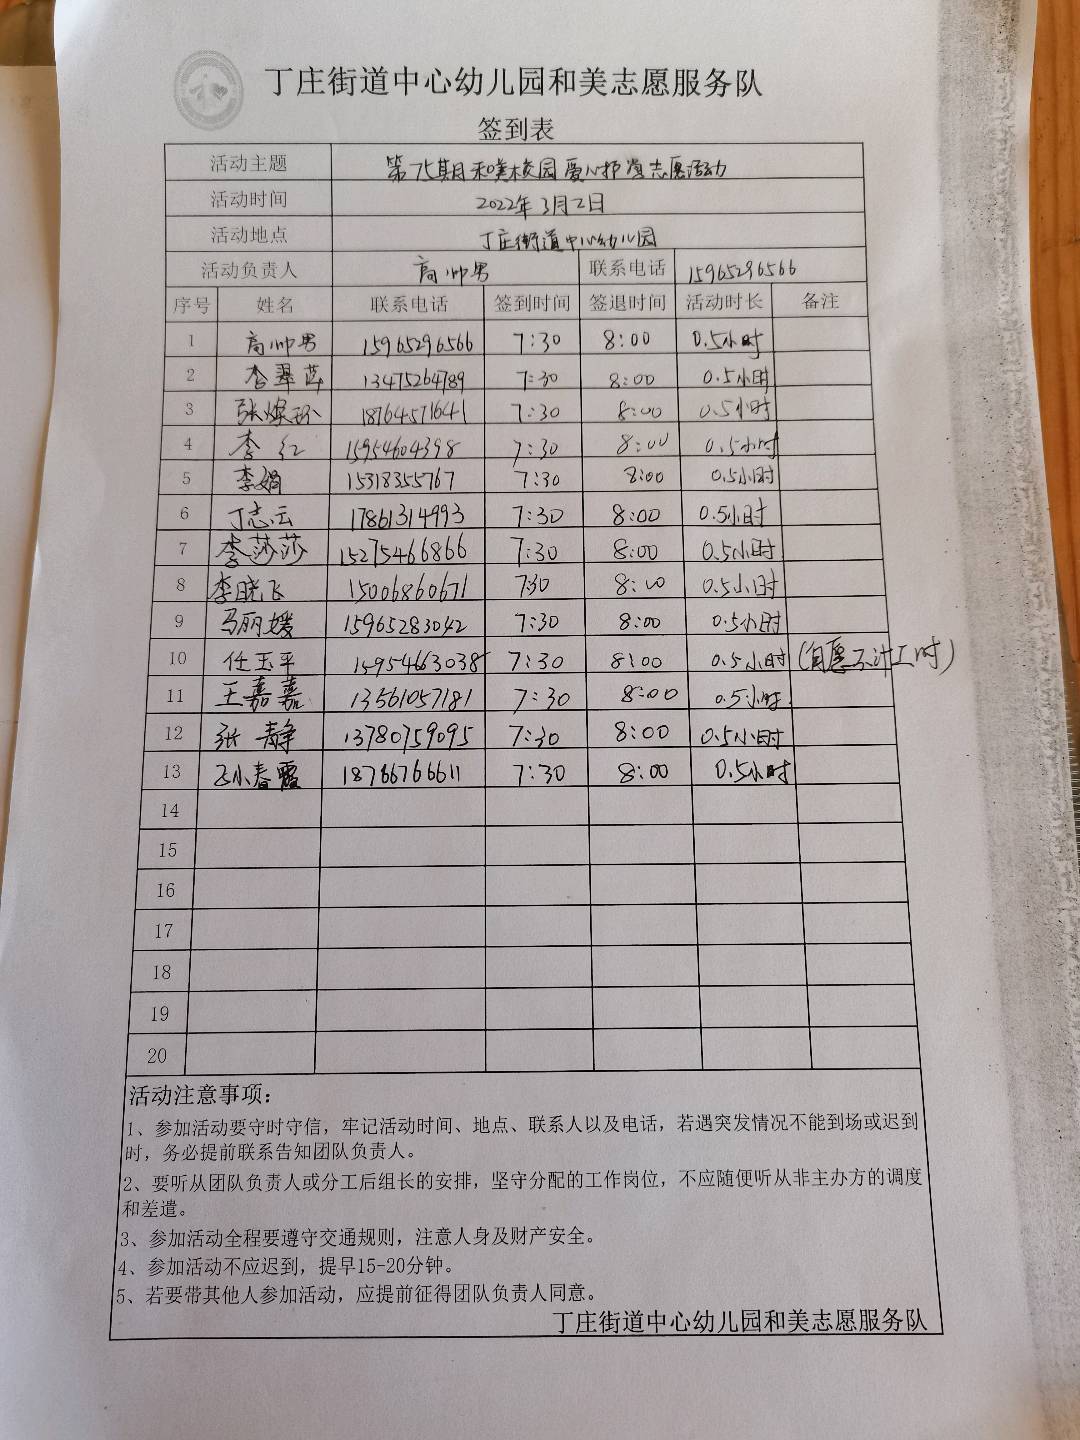 丁庄街道中心幼儿园和美志愿服务队
签到表
活动主题 第75期和美校园爱心护学志愿活动
活动时间 2022年3月2日
活动地点 丁庄街道中心幼儿园
活动负责人 高帅男 联系电话 15965296566
序号 姓名 联系电话 签到时间 签退时间 活动时长 备注
1 高帅男 15965296566 7:30 8:00 0.5小时
2 李翠萍 13475264789 7:30 8:00 0.5小时
3 张 18764571641 7:30 8:00 0.5小时
4 李红 15954604398 7:30 8:00 0.5小时
5 李娟 15318355767 7:30 8:00 0.5小时
6 丁志云 17861314993 7:30 8:00 0.5小时
7 李莎莎 15275466866 7:30 8:00 0.5小时
8 李晓飞 15006860671 7:30 8:00 0.5小时
9 马丽媛 15965283042 7:30 8:00 0.5小时
10 任玉平 15954663038 7:30 8:00 0.5小时 (自愿不计工时)
11 王嘉嘉 13561057181 7:30 8:00 0.5小时
12 张静 13780759095 7:30 8:00 0.5小时
13 小春霞 18766766611 7:30 8:00 0.5小时
14
15
16
17
18
19
20
活动注意事项:
1、参加活动要守时守信，牢记活动时间、地点、联系人以及电话，若遇突发情况不能到场或迟到
时，务必提前联系告知团队负责人。
2、要听从团队负责人或分工后组长的安排，坚守分配的工作岗位，不应随便听从非主办方的调度
和差遣。
3、参加活动全程要遵守交通规则，注意人身及财产安全。
4、参加活动不应迟到，提早15-20分钟。
5、若要带其他人参加活动，应提前征得团队负责人同意。
丁庄街道中心幼儿园和美志愿服务队